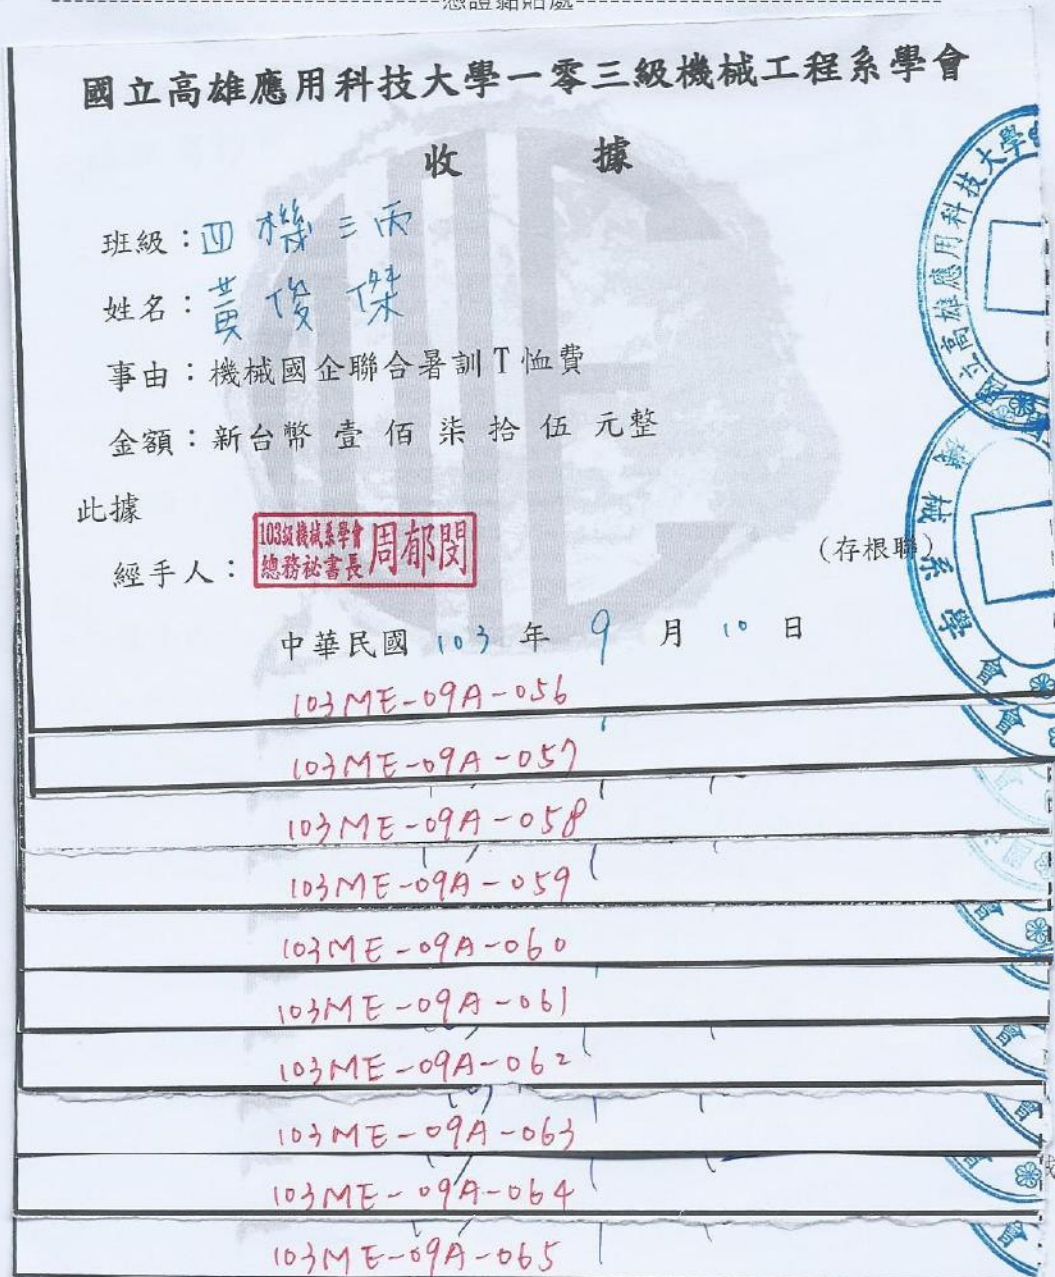 憑證黏貼處
國立高雄應用科技大學一零三級機械工程系學會
收 據
班級：四機三丙
姓名：黃俊傑
事由：機械國企聯合暑訓T恤費
金額：新台幣 壹 佰 柒 拾 伍 元整
此據
經手人：
103級機械系學會
總務祕書長
周郁閔
(存根聯)
中華民國 103 年 9 月 10 日
103ME-09A-056
103ME-09A-057
103ME-09A-058
103ME-09A-059
103ME-09A-060
103ME-09A-061
103ME-09A-062
103ME-09A-063
103ME-09A-064
103ME-09A-065
國立高雄應用科技大學
機械系學會